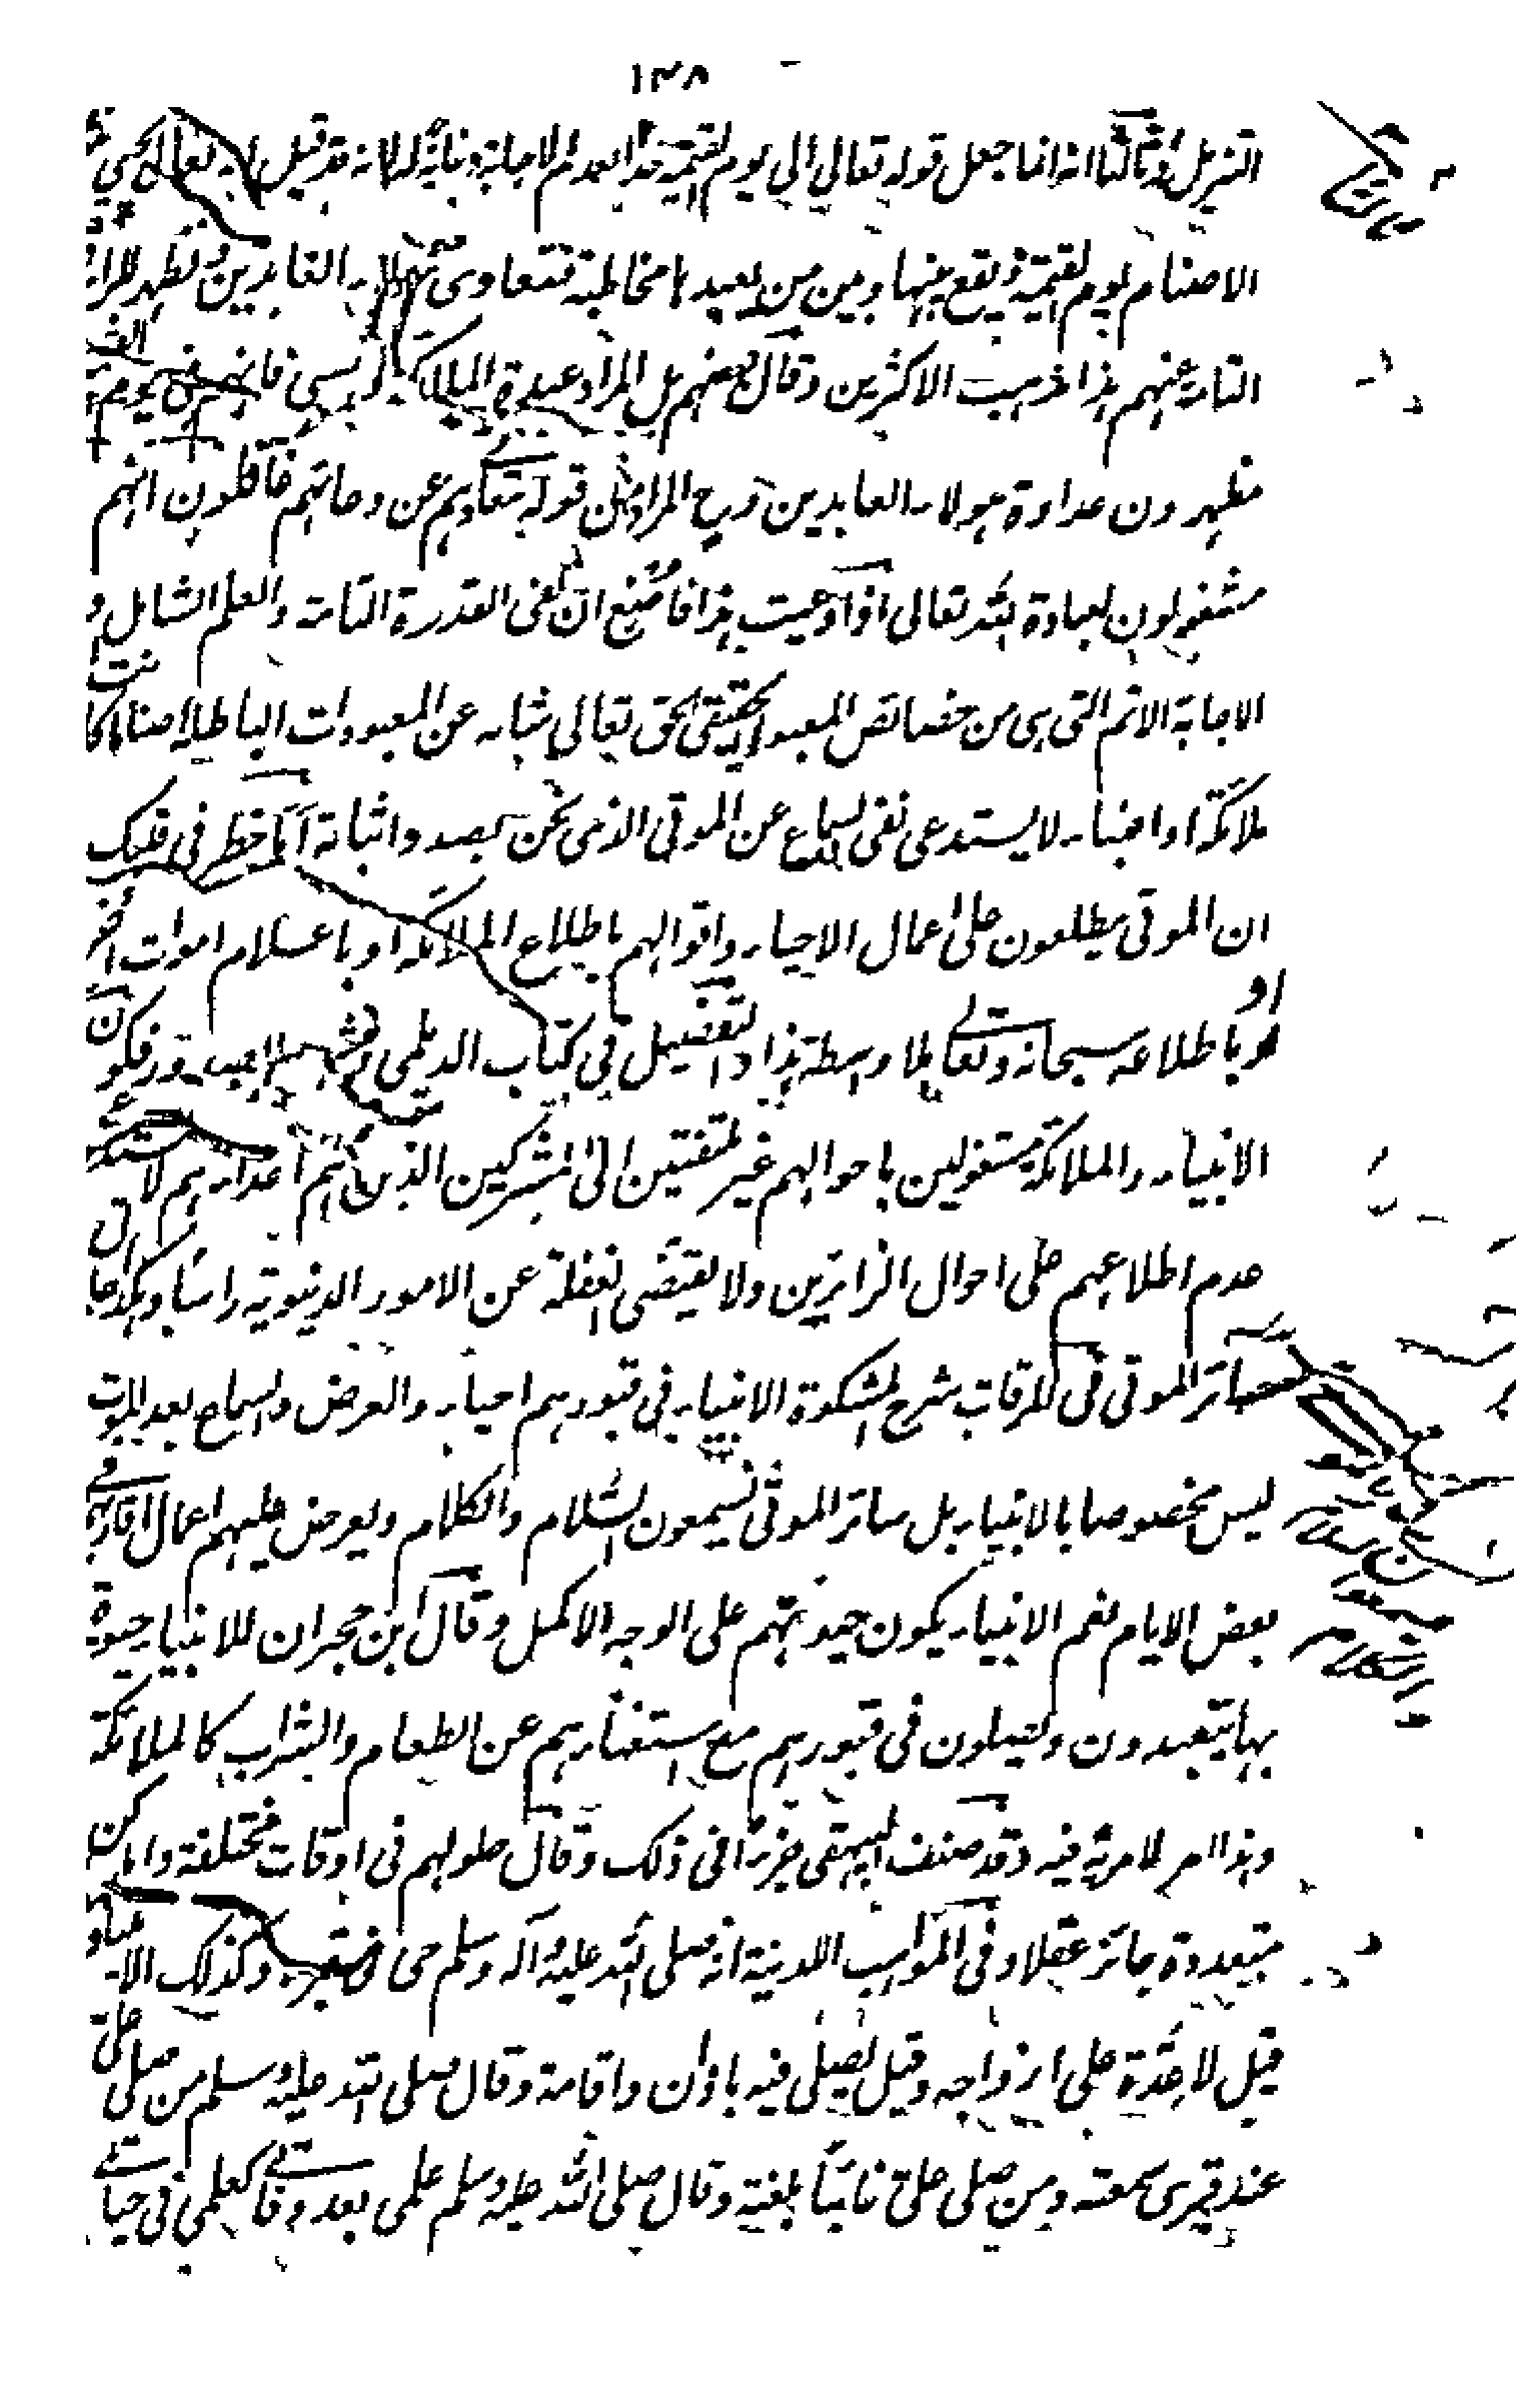 ١٣٨
التنزيل وثالثا انه انما جعل قوله تعالى الى يوم القيمة حدا لعدم الاجابة لانه قد قيل انه تعالى يحيي
الاصنام يوم القيمة فيقع بينها وبين من يعبدها مخاطبة فتعادى هؤلاء العابدين وتظهر البراءة
التامة عنهم هذا مذهب الاكثرين وقال بعضهم بل المراد عبدة الملائكة وعيسى فانهم فى يوم القيمة
مظهرون عداوة هؤلاء العابدين وح المراد من قوله تعالى وهم عن دعائهم غافلون انهم
مشغولون بعبادة الله تعالى اذا وعيت هذا فاستمع ان نفى القدرة التامة والعلم الشامل و
الاجابة الاتم التى هى من خصائص المعبود الحقيقى الحق تعالى شانه عن المعبودات الباطلة اصناما كانت
ملائكة او انبياء لا يستدعى نفى السماع عن الموتى الذى نحن بصدد اثباته اما خطر فى قلبك
ان الموتى يطلعون على اعمال الاحياء واقوالهم باطلاع الملائكة او باعلام اموات اخر
او باطلاعه سبحانه وتعالى بلا واسطة هذا التفصيل فى كتاب الديلمى فكون
الانبياء والملائكة مشغولين باحوالهم غير ملتفتين الى المشركين الذين هم اعداءهم لا يستدعى
عدم اطلاعهم على احوال الزائرين ولا يقتضى الغفلة عن الامور الدنيوية راسا وهكذا حال
سائر الموتى فى المرقات شرح المشكوة الانبياء فى قبورهم احياء والعرض والسماع بعد الموت
ليس مخصوصا بالانبياء بل سائر الموتى يسمعون السلام والكلام ويعرض عليهم اعمال اقاربهم فى
بعض الايام نعم الانبياء يكون حيوتهم على الوجه الاكمل وقال ابن حجر ان للانبياء حيوة
بها يتعبدون ويصلون فى قبورهم مع استغنائهم عن الطعام والشراب كالملائكة
وهذا امر لا مرية فيه وقد صنف البيهقى جزءا فى ذلك وقال حلولهم فى اوقات مختلفة واماكن
متعددة جائز عقلا وفى المواهب اللدنية انه صلى الله عليه وآله وسلم حى فى قبره وكذلك الانبياء و
قيل لا عدة على ازواجه وقيل يصلى فيه باذان واقامة وقال صلى الله عليه وسلم من صلى على
عند قبرى سمعته ومن صلى على نائيا بلغته وقال صلى الله عليه وسلم علمى بعد وفاتى كعلمى فى حياتى